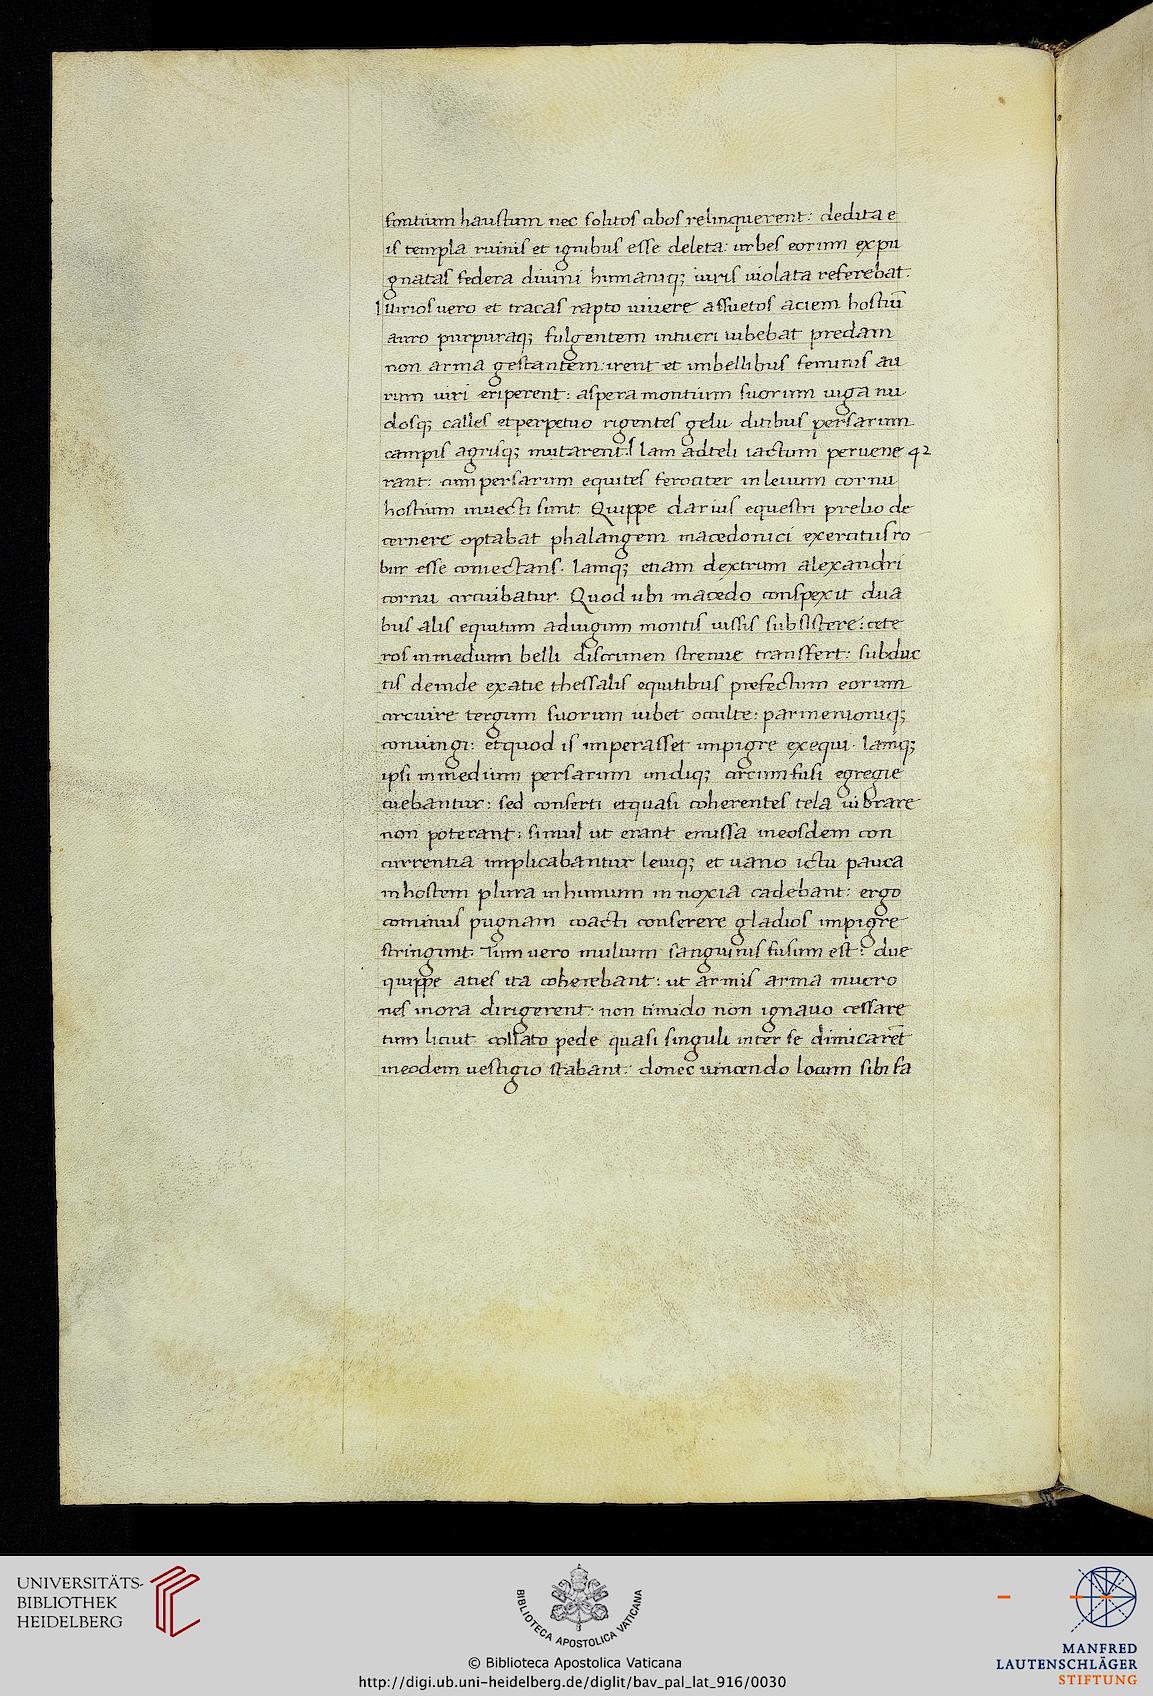 fontium haustum nec solitos cibos relinquerent: dedita e
is templa ruinis et ignibus esse deleta: urbes eorum expu
gnatas federa diuini humaniq; iuris uiolata referebat.
Illirios uero et tracas rapto uiuere assuetos aciem hostiū
auro purpuraq; fulgentem intueri iubebat predam
non arma gestantem: irent et imbellibus feminis au
rum uiri eriperent: aspera montium suorum iuga nu
dosq; calles et perpetuo rigentes gelu ditibus persarum
campis agrisq; mutarent. Iam ad teli iactum peruene 42
rant: cum persarum equites ferociter in leuum cornu
hostium inuecti sunt. Quippe darius equestri prelio de
cernere optabat phalangem macedonici exercitus ro
bur esse coniectans. Iamq; etiam dextrum alexandri
cornu circuibatur. Quod ubi macedo conspexit dua
bus alis equitum ad iugum montis iussis subsistere: cete
ros in medium belli discrimen strenue transfert: subduc
tis deinde ex acie thessalis equitibus prefectum eorum
circuire tergum suorum iubet occulte: parmenioniq;
coniungi: et quod is imperasset impigre exequi. Iamq;
ipsi in medium persarum undiq; circumfusi egregie
tuebantur: sed conserti et quasi coherentes tela uibrare
non poterant: simul ut erant emissa in eosdem con
currentia implicabantur leuiq; et uano ictu pauca
in hostem plura in humum innoxia cadebant: ergo
cominus pugnam coacti conserere gladios impigre
stringunt. Tum uero multum sanguinis fusum est: due
quippe acies ita coherebant: ut armis arma mucro
nes in ora dirigerent: non timido non ignauo cessare
tum licuit. collato pede quasi singuli inter se dimicarēt
in eodem uestigio stabant: donec uincendo locum sibi fa
UNIVERSITÄTS-
BIBLIOTHEK
HEIDELBERG
BIBLIOTECA APOSTOLICA VATICANA
© Biblioteca Apostolica Vaticana
http://digi.ub.uni-heidelberg.de/diglit/bav_pal_lat_916/0030
MANFRED
LAUTENSCHLÄGER
STIFTUNG